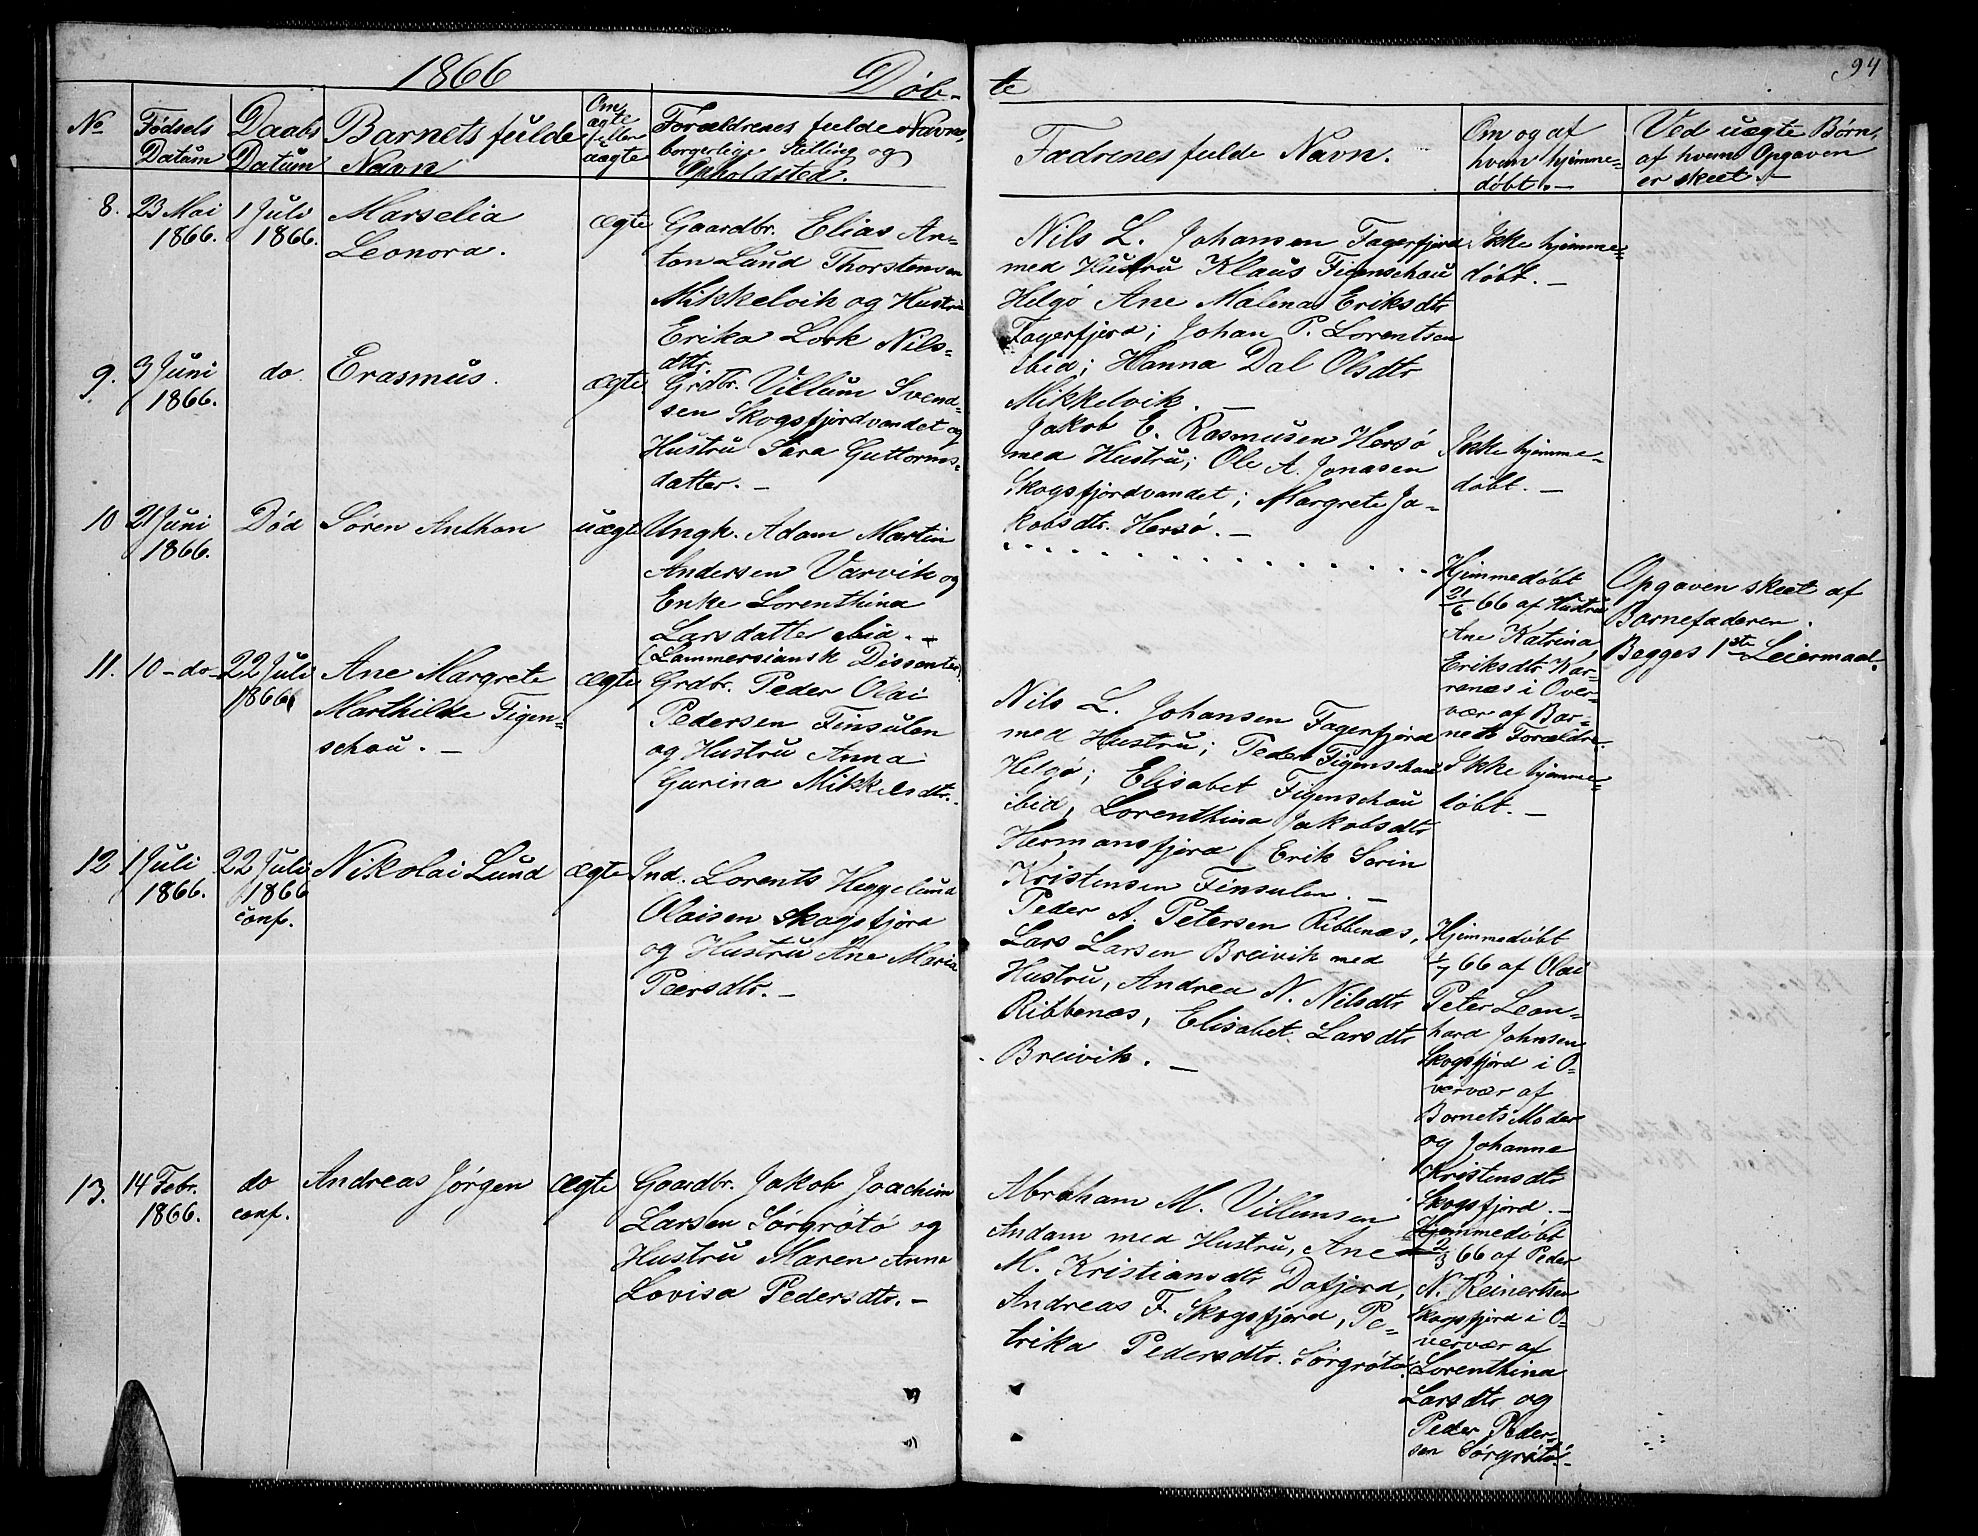 1866
Døb-
te
94
No
Fødsels
Datum
Daabs
Datum
Barnets fulde
Navn
Om
ægte
eller
uægte
Forældrenes fulde Navn,
borgerlige Stilling og
Opholdsted.
Fadrenes fulde Navn.
Om og af
hvem hjemme-
døbt. -
Ved uægte Børn,
af hvem Opgaven
er skeet. -
8.
23 Mai
1866.
1 Juli
1866.
Marselia
Leonora.
ægte
Gaardbr. Elias An-
ton Lund Thorstensen
Mikkelvik og Hustru
Erika Lork Nils-
dtr.
Nils L. Johansen Fagerfjord
med Hustru Klaus Figenschau
Helgø Ane Malena Eriksdtr
Fagerfjord; Johan P. Lorentsen
ibid; Hanna Dal Olsdtr
Mikkelvik. -
Ikke hjemme-
døbt. -
9.
3 Juni
1866.
do.
Erasmus.
ægte
Grdbr. Villum Svend-
sen Skogsfjordvandet og
Hustru Sara Guttorms-
datter. -
Jakob E. Rasmusen Hersø
med Hustru; Ole A. Jonasen
Skogsfjordvandet; Margrete Ja-
kobsdtr. Hersø. -
Ikke hjemme-
døbt. -
10
21 Juni
1866.
Død
Sören Anthon
uægte
Ungk. Adam Martin
Andersen Varvik og
Enke Lorenthina
Larsdatter ibid. -
(Lammersiansk Dissenter)
Hjemmedøbt
21/6 66 af Hustru
Ane Katrina
Eriksdtr. Kar-
renæs i Over-
vær af Bar-
nets Forældre.
Opgaven skeet af
Barnefaderen.
Begges 1ste Leiermaal.
11.
10 - do -
22 Juli
1866
Ane Margrete
Marthilde Figen-
schau. -
ægte
Grdbr. Peder Olai
Pedersen Finsulen
og Hustru Anna
Gurina Mikkelsdtr.
Nils L. Johansen Fagerfjord
med Hustru; Peder Figenschau
Helgø; Elisabet Figenschau
ibid, Lorenthina Jakobsdtr
Hermansfjord (Erik Sorin
Kristensen Finsulen. -
Ikke hjemme-
døbt. -
12
1 Juli
1866.
22 Juli
1866
conf.
Nikolai Lund
ægte
Ind. Lorents Heggelund
Olaisen Skogsfjord
og Hustru Ane Maria
Peersdtr. -
Peder A. Petersen Ribbenæs,
Lars Larsen Breivik med
Hustru, Andrea N. Nilsdtr
Ribbenæs, Elisabet Larsdtr
Breivik. -
Hjemmedøbt
1/7 66 af Olai
Peter Leon-
hard Johnsen
Skogsfjord i O-
vervær af
Barnets Moder
og Johanne
Kristensdtr
Skogsfjord. -
13.
14 Febr.
1866.
do
conf.
Andreas Jørgen
ægte
Gaardbr. Jakob Joachim
Larsen Sørgrøtø og
Hustru Maren Anna
Lovisa Pedersdtr. -
Abraham M. Villumsen
Andam med Hustru, Ane
M. Kristiansdtr Dafjord,
Andreas F. Skogsfjord, Pe-
trika Pedersdtr. Sørgrøtø.
Hjemmedøbt
2/3 66 af Peder
N. Reinertsen
Skogsfjord i O-
vervær af
Lorenthina
Larsdtr og
Peder Peder-
sen Sørgrøtø. -